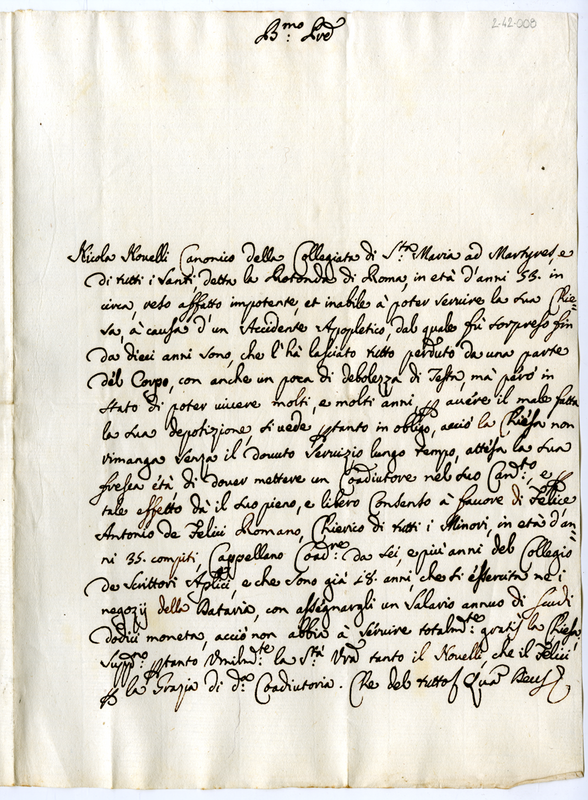 2-42-008
B.mo Pre
Nicola Novelli Canonico della Collegiata di S.ta Maria ad Martyres, e
di tutti i Santi detta la Rotonda di Roma, in età d'anni 58. in
circa, reso affatto impotente, et inabile à poter servire la sua Chie=
sa, à causa d'un Accidente Apopletico, dal quale fù sorpreso fin
da dieci anni sono, che l'hà lasciato tutto perduto da una parte
del Corpo, con anche un poca di debolezza di Testa, mà però in
stato di poter vivere molti, e molti anni, p avere il male fatta
la sua depotizione, si vede ptanto in obligo, acciò la Chiesa non
rimanga senza il dovuto servizio lungo tempo, attesa la sua
fresca età di dover mettere un Coadiutore nel suo Can.to, e p
tale effetto dà il suo pieno, e libero Consenso à favore di Felice
Antonio de Felici Romano, Chierico di tutti i Minori, in età d'an=
ni 35. compiti, Cappellano Coad.re da sei, e più anni del Collegio
de Scrittori Aplici, e che sono già 18. anni, che si essercita ne i
negozij della Dataria, con assegnargli un Salario annuo di scudi
dodici moneta, acciò non abbia à servire totalm.te gratis la Chiesa,
Supp.no ptanto Umilm.te la S.tà Vra tanto il Novelli, che il Felici
p la Grazia di d.a Coadiutoria. Che del tutto Qua Deus